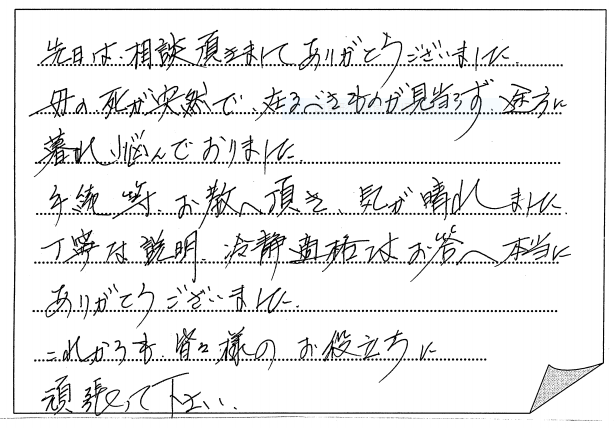 先日は、相談頂きましてありがとうございました。
母の死が突然で、在るべきものが見当らず、途方に
暮れ悩んでおりました。
手続等、お教へ頂き、気が晴れました。
丁寧な説明、冷静適格なお答へ本当に
ありがとうございました。
これからも、皆々様のお役立ちに
頑張って下さい。